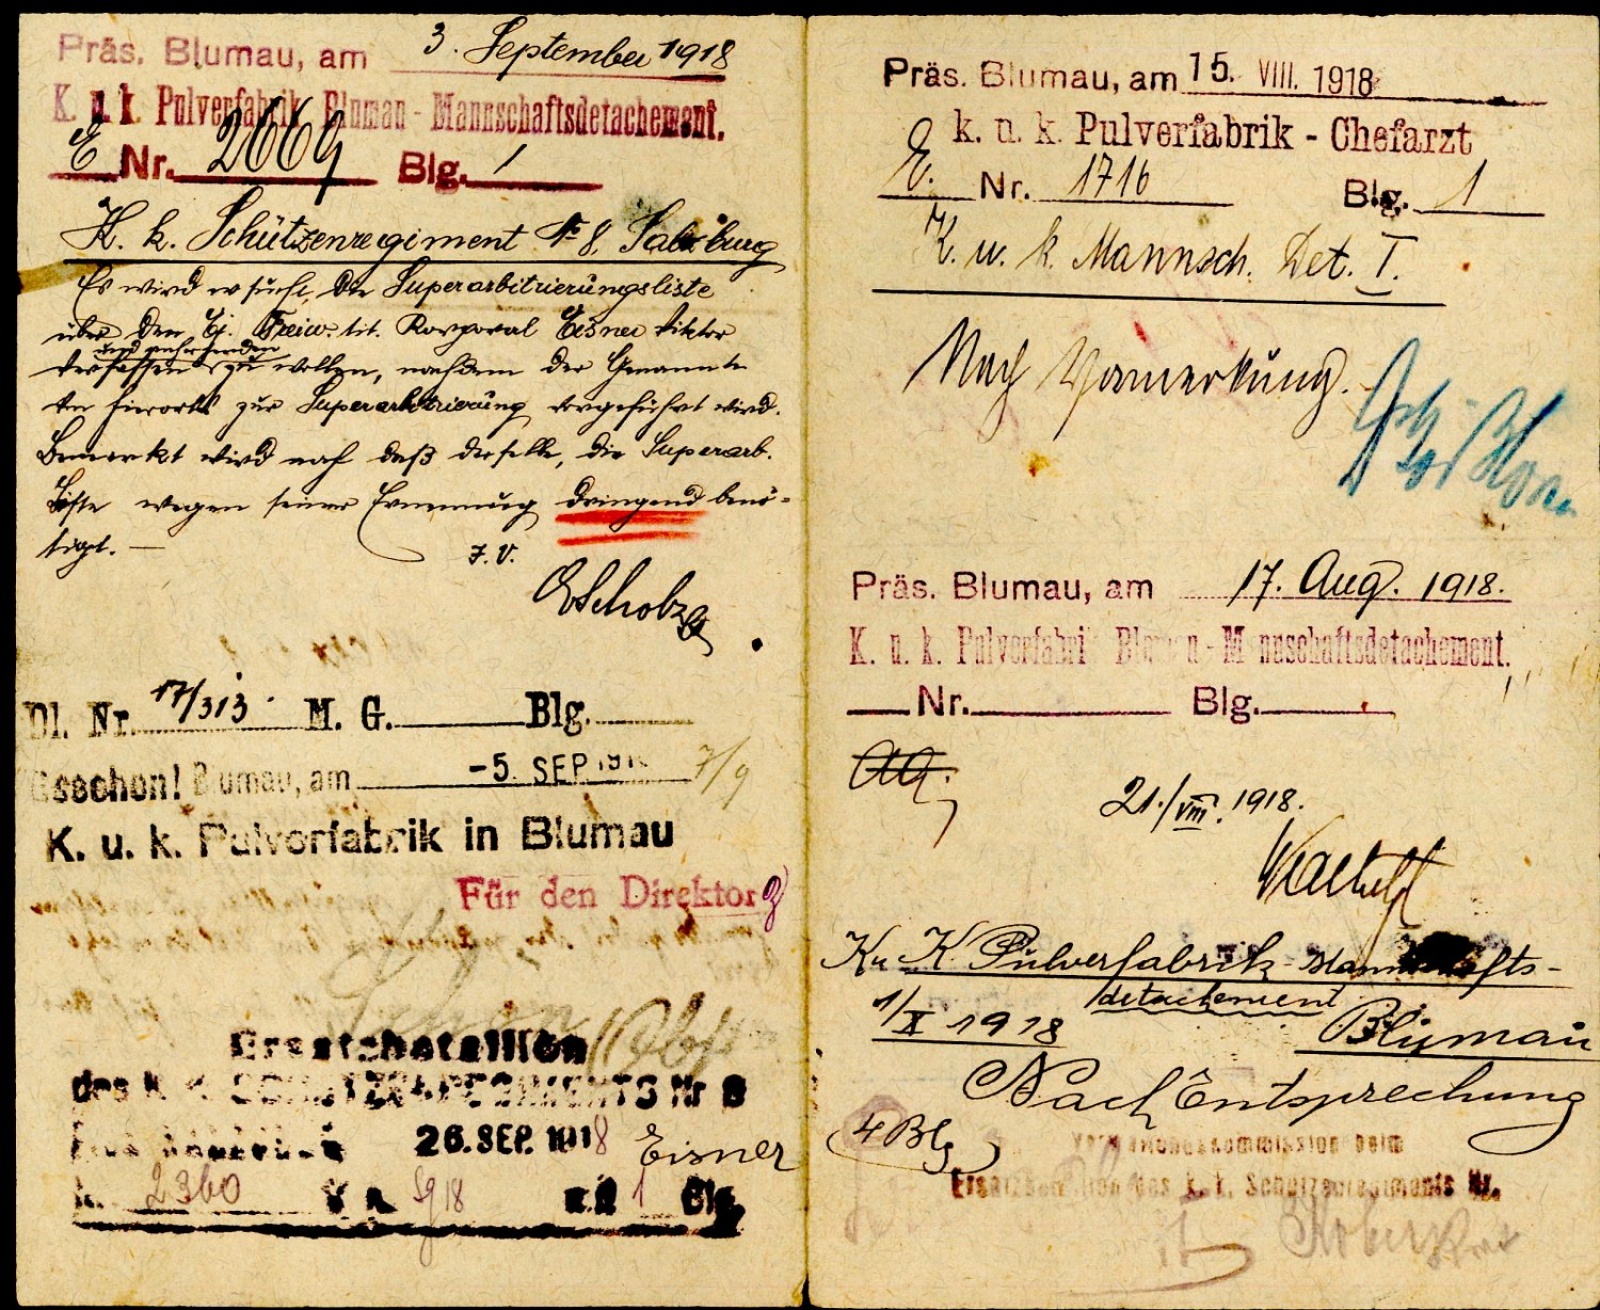 Präs. Blumau, am 3. September 1918
K. u. k. Pulverfabrik Blumau - Mannschaftsdetachement.
E Nr. 2669 Blg. 1
K. k. Schützenregiment № 8, Salzburg
Es wird ersucht, die Superarbitrierungsliste
über den Ej. Freiw. tit. Korporal Eisner Viktor
und
verfassen zu wollen, nachdem der Genannte
hierorts zur Superarbitrierung vorgeführt wird.
Bemerkt wird noch daß derselbe, die Superarb.
Liste wegen seiner Ernennung dringend benö-
tigt. —
I. V.
EScholz
Dl. Nr. 17/313 M. G. Blg.
Gesehen! Blumau, am -5. SEP. 191 7/9
K. u. k. Pulverfabrik in Blumau
Für den Direktor
Ersatzbataillon
des K. K. SCHÜTZENREGIMENTS Nr 8
26. SEP. 1918 Eisner
2360 18 1 Blg.
Präs. Blumau, am 15. VIII. 1918
k. u. k. Pulverfabrik - Chefarzt
E. Nr. 1716 Blg. 1
K. u. k. Mannsch. Det. I.
Nach Vormerkung.
Präs. Blumau, am 17. Aug. 1918.
K. u. k. Pulverfabrik Blumau - Mannschaftsdetachement.
Nr. Blg.
21./VIII. 1918.
K u K Pulverfabrik-Mannschafts-
detachement
1/X 1918 Blumau
Nach Entsprechung
4 Blg
kommission beim
Ersatzbataillon des k. k. Schützenregiments Nr.